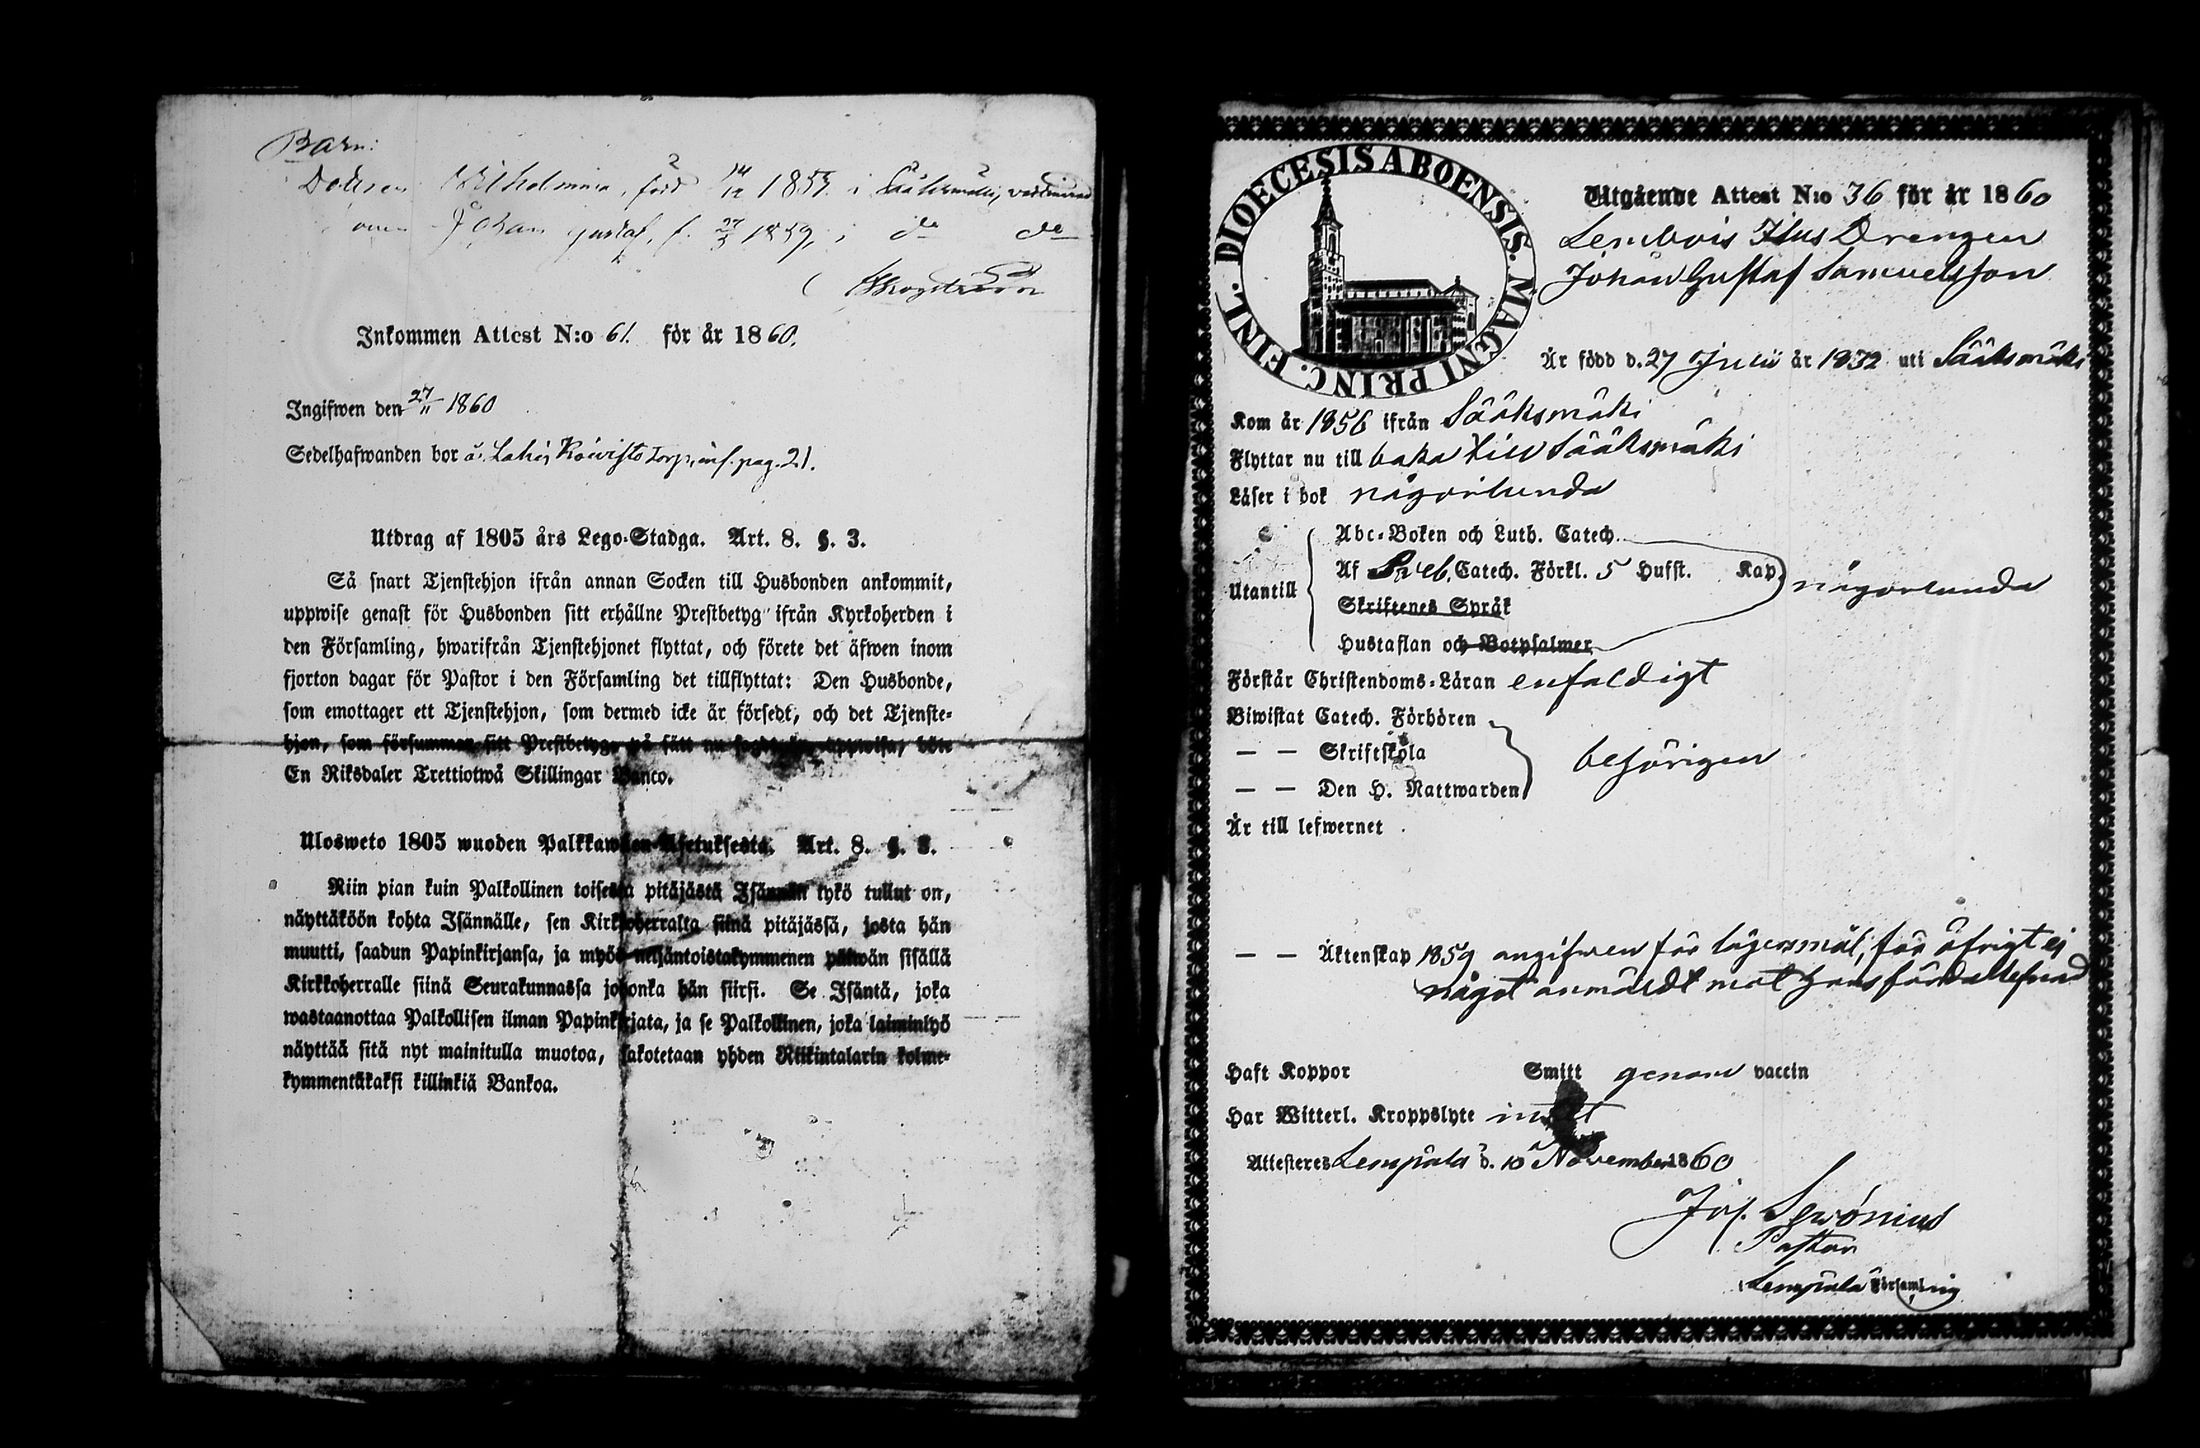 Barn:
Dottren Wilhelmina, född 14/12 1857. i Sääksmäki, vaccinerad
Johan Gustaf, f. 27/3 1859, i do do
Inkommen Attest N:o 61. för år 1860.
Ingifwen den 27/11 1860
Sedelhafwanden bor å Lahis Koivisto Torp, inf. pag. 21.
Utdrag af 1805 års Lego-Stadga. Art. 8. §. 3.
Så snart Tjenstehjon ifrån annan Socken till Husbonden ankommit,
uppwise genast för Husbonden sitt erhållne Prestbetyg ifrån Kyrkoherden i
den Församling, hwarifrån Tjenstehjonet flyttat, och förete det äfwen inom
fjorton dagar för Pastor i den Församling det tillflyttat: Den Husbonde,
som emottager ett Tjenstehjon, som dermed icke är försedt, och det Tjenste-
hjon, som försummar sitt Prestbetyg, på sätt nu sagdt är, uppwisa, böte
En Riksdaler Trettiotwå Skillingar Banco.
Ulosweto 1805 wuoden Palkkawäen-Asetuksesta. Art. 8. §. 3.
Niin pian kuin Palkollinen toisesta pitäjästä Isännän tykö tullut on,
näyttäköön kohta Isännälle, sen Kirkkoherralta siinä pitäjässä, josta hän
muutti, saadun Papinkirjansa, ja myös neljäntoistakymmenen päiwän sisällä
Kirkkoherralle siinä Seurakunnassa johonka hän siirsi. Se Isäntä, joka
wastaanottaa Palkollisen ilman Papinkirjata, ja se Palkollinen, joka laiminlyö
näyttää sitä nyt mainitulla muotoa, sakotetaan yhden Riikintalarin kolme-
kymmentäkaksi killinkiä Bankoa.
DIOECESIS ABOENSIS. MAGNI PRINC. FINL.
Utgående Attest N:o 36 för år 1860
Lembois Drengen
Johan Gustaf Samuelsson
Är född d. 27 Julii år 1832 uti Sääksmäki
Kom år 1856 ifrån Sääksmäki
Flyttar nu till baka till Sääksmäki
Läser i bok någorlunda
Utantill
Abc-Boken och Luth. Catech.
Af Sveb. Catech. Förkl. 5 Hufst. Kap. någorlunda
Skriftenes Språk
Hustaflan och Botpsalmer
Förstår Christendoms-Läran enfaldigt
Biwistat Catech. Förhören
— — Skriftskola behörigen
— — Den H. Nattwarden
Är till lefwernet
— — Äktenskap 1859 angifwen för lägersmål, för öfrigt ej
något anmäldt mot hans
Haft Koppor Smitt genom vaccin
Har Witterl. Kroppslyte intet
Attesteres Lempälä d. 10 November 1860
Jos.
Pastor
i Lempälä Församling